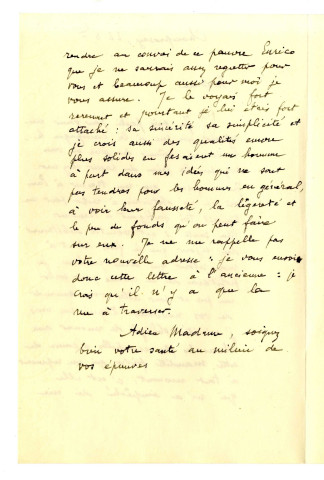 rendre au convoi de ce pauvre Enrico
que je ne saurais assez regretter pour
vous et beaucoup aussi pour moi je
vous assure. Je le voyais fort
rarement et pourtant je lui étais fort
attaché : sa sincérité sa simplicité et
je crois aussi des qualités encore
plus solides en fesaient un homme
à part dans mes idées qui ne sont
pas tendres pour les hommes en général,
à voir leur fausseté, la légèreté et
le peu de fonds qu'on peut faire
sur eux. Je ne me rappelle pas
votre nouvelle adresse : je vous envoie
donc cette lettre à l'ancienne : je
crois qu'il n'y a que la
rue à traverser.
Adieu Madame, soignez
bien votre santé au milieu de
vos épreuves